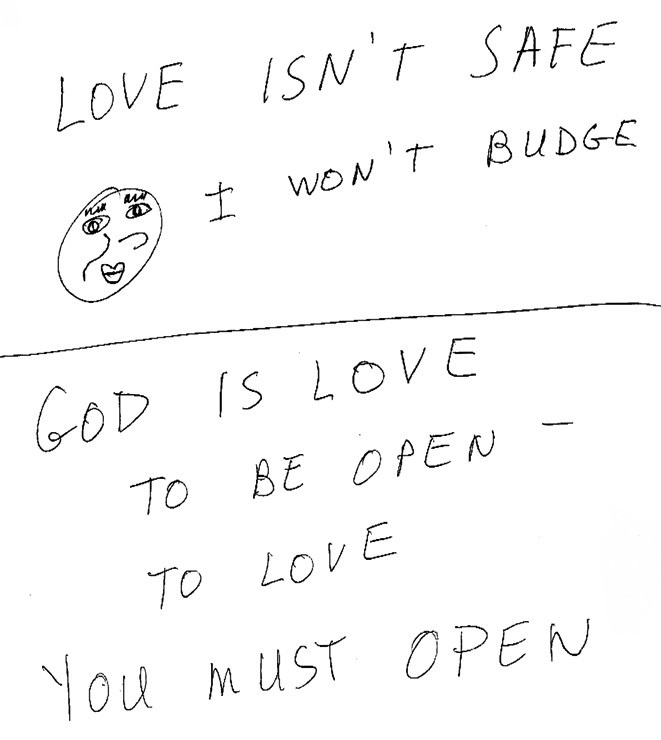 LOVE ISN'T SAFE
I WON'T BUDGE
GOD IS LOVE
TO BE OPEN –
TO LOVE
YOU MUST OPEN